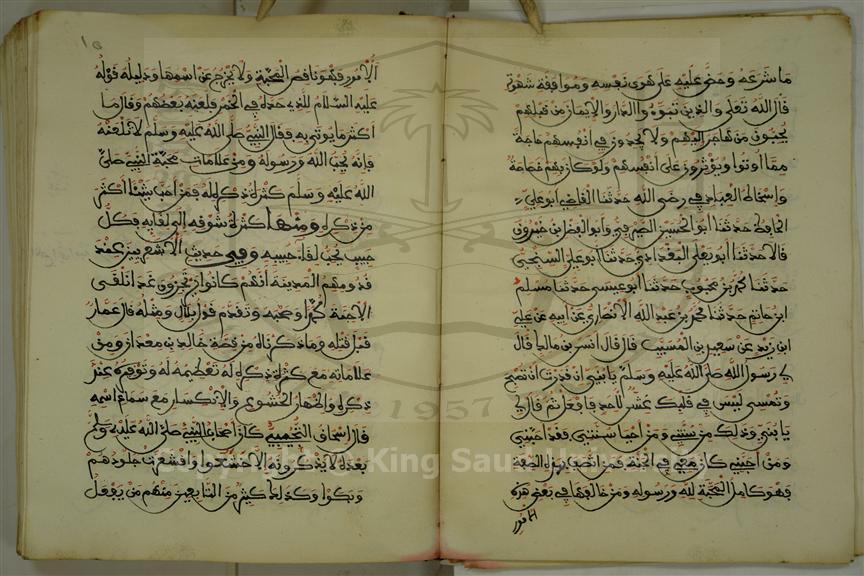 ما شرعه وحض عليه على هوى نفسه وموافقة شهوته
قال الله تعلى والذين تبوءوا الدار والايمان من قبلهم
يحبون من هاجر اليهم ولا يجدون في انفسهم حاجة
مما اوتوا ويوثرون على انفسهم ولو كان بهم خصاصة
واسخاط العباد في رضى الله حدثنا القاضي ابو علي
الحافظ حدثنا ابو الحسين الصيرفي وابو الفضل ابن خيرون
قالا حدثنا ابو يعلى البغدادي حدثنا ابو علي السنجي
حدثنا محمد بن محبوب حدثنا ابو عيسى حدثنا مسلم
ابن حاتم حدثنا محمد بن عبد الله الانصاري عن ابيه عن علي
ابن زيد عن سعيد بن المسيب قال قال انس بن مالك قال
لي رسول الله صلى الله عليه وسلم يا بني ان قدرت ان تصبح
وتمسي ليس في قلبك غش لاحد فافعل ثم قال لي
يا بني وذلك من سنتي ومن احيا سنتي فقد احبني
ومن احبني كان معي في الجنة فمن اتصف بهذه الصفة
فهو كامل المحبة لله ورسوله ومن خالفها في بعض هذه
الامور
الامور فهو ناقص المحبة ولا يخرج عن اسمها ودليله قوله
عليه السلام للذي حده في الخمر فلعنه بعضهم وقال ما
اكثر ما يوتى به فقال النبي صلى الله عليه وسلم لا تلعنه
فانه يحب الله ورسوله ومن علامات محبة النبي صلى
الله عليه وسلم كثرة ذكره له فمن احب شيئا اكثر
من ذكره ومنها كثرة شوقه الى لقايه فكل
حبيب يحب لقاء حبيبه وفي حديث الاشعريين عند
قدومهم المدينة انهم كانوا يرتجزون غدا نلقى
الاحبة محمدا وصحبه وتقدم قول بلال ومثله قال عمار
قبل قتله وما ذكرناه من قصة خالد بن معدان ومن
علاماته مع كثرة ذكره له تعظيمه له وتوقيره عند
ذكره واظهار الخشوع والانكسار مع سماع اسمه
قال اسحاق التجيبي كان اصحاب النبي صلى الله عليه وسلم
بعده لا يذكرونه الا خشعوا واقشعرت جلودهم
وبكوا وكذلك كثير من التابعين منهم من يفعل
1957
Copyright © King Saud University